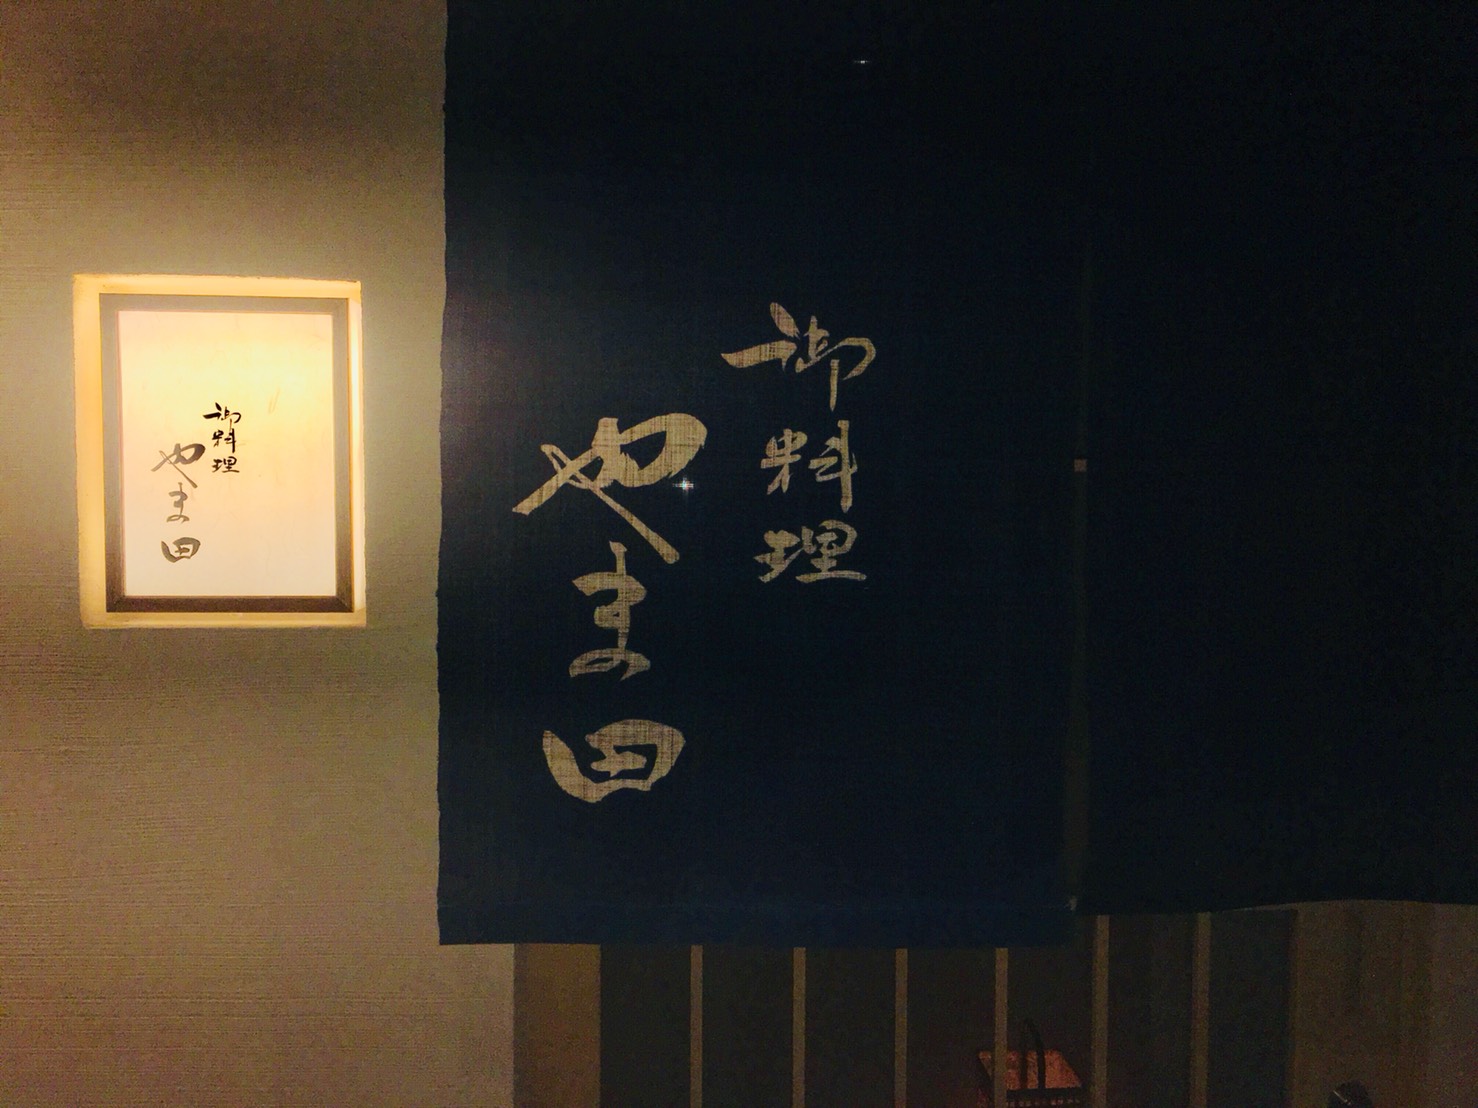 御料理
やま田
御料理
やま田